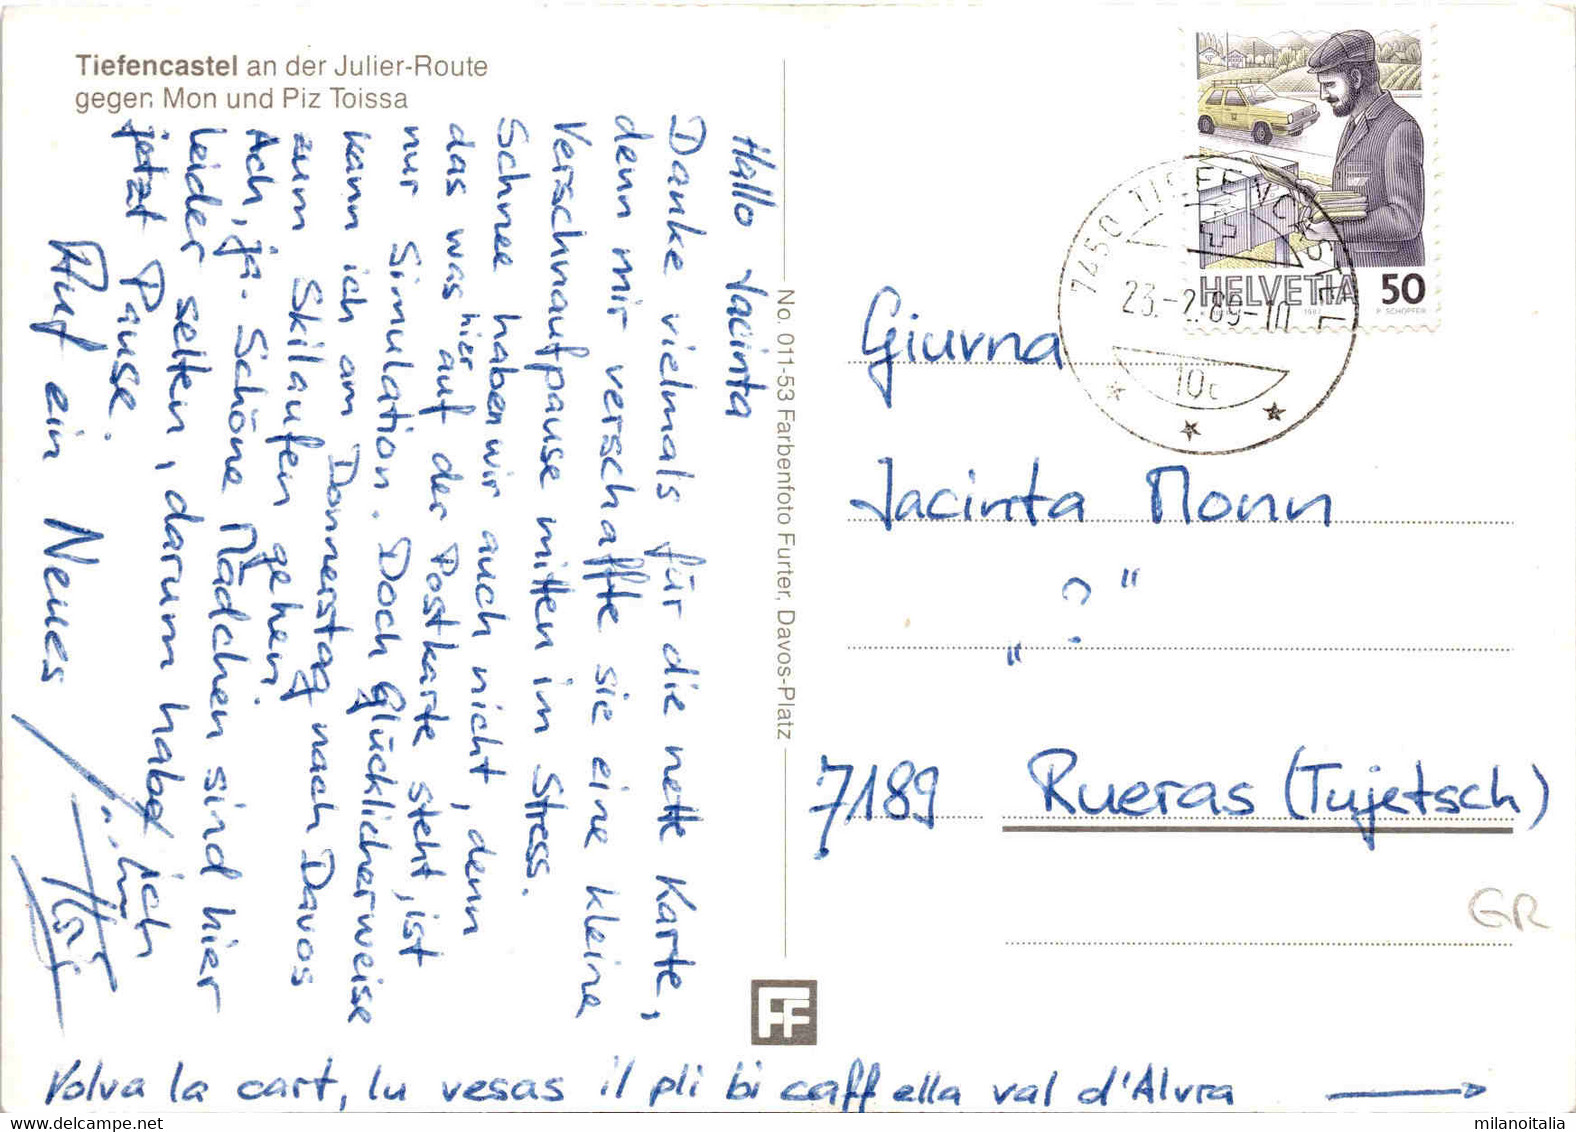 Tiefencastel an der Julier-Route
gegen Mon und Piz Toissa
Hallo Jacinta
Danke vielmals für die nette Karte,
denn mir verschaffte sie eine kleine
Verschnaufpause mitten im Stress.
Schnee haben wir auch nicht, denn
das was hier auf der Postkarte steht, ist
nur Simulation. Doch glücklicherweise
kann ich am Donnerstag nach Davos
zum Skilaufen gehen.
Ach, ja. Schöne Mädchen sind hier
leider selten, darum habe ich
jetzt Pause.
Auf ein Neues
Volva la cart, lu vesas il pli bi caff ella val d'Alvra
No. 011-53 Farbenfoto Furter, Davos-Platz
FF
HELVETIA 50
1987 P. SCHOPFER
7450 TIEFENCASTEL
23.-2.89-10
10c
Giuvna
Jacinta Monn
" ? "
7189 Rueras (Tujetsch)
GR
milanoitalia